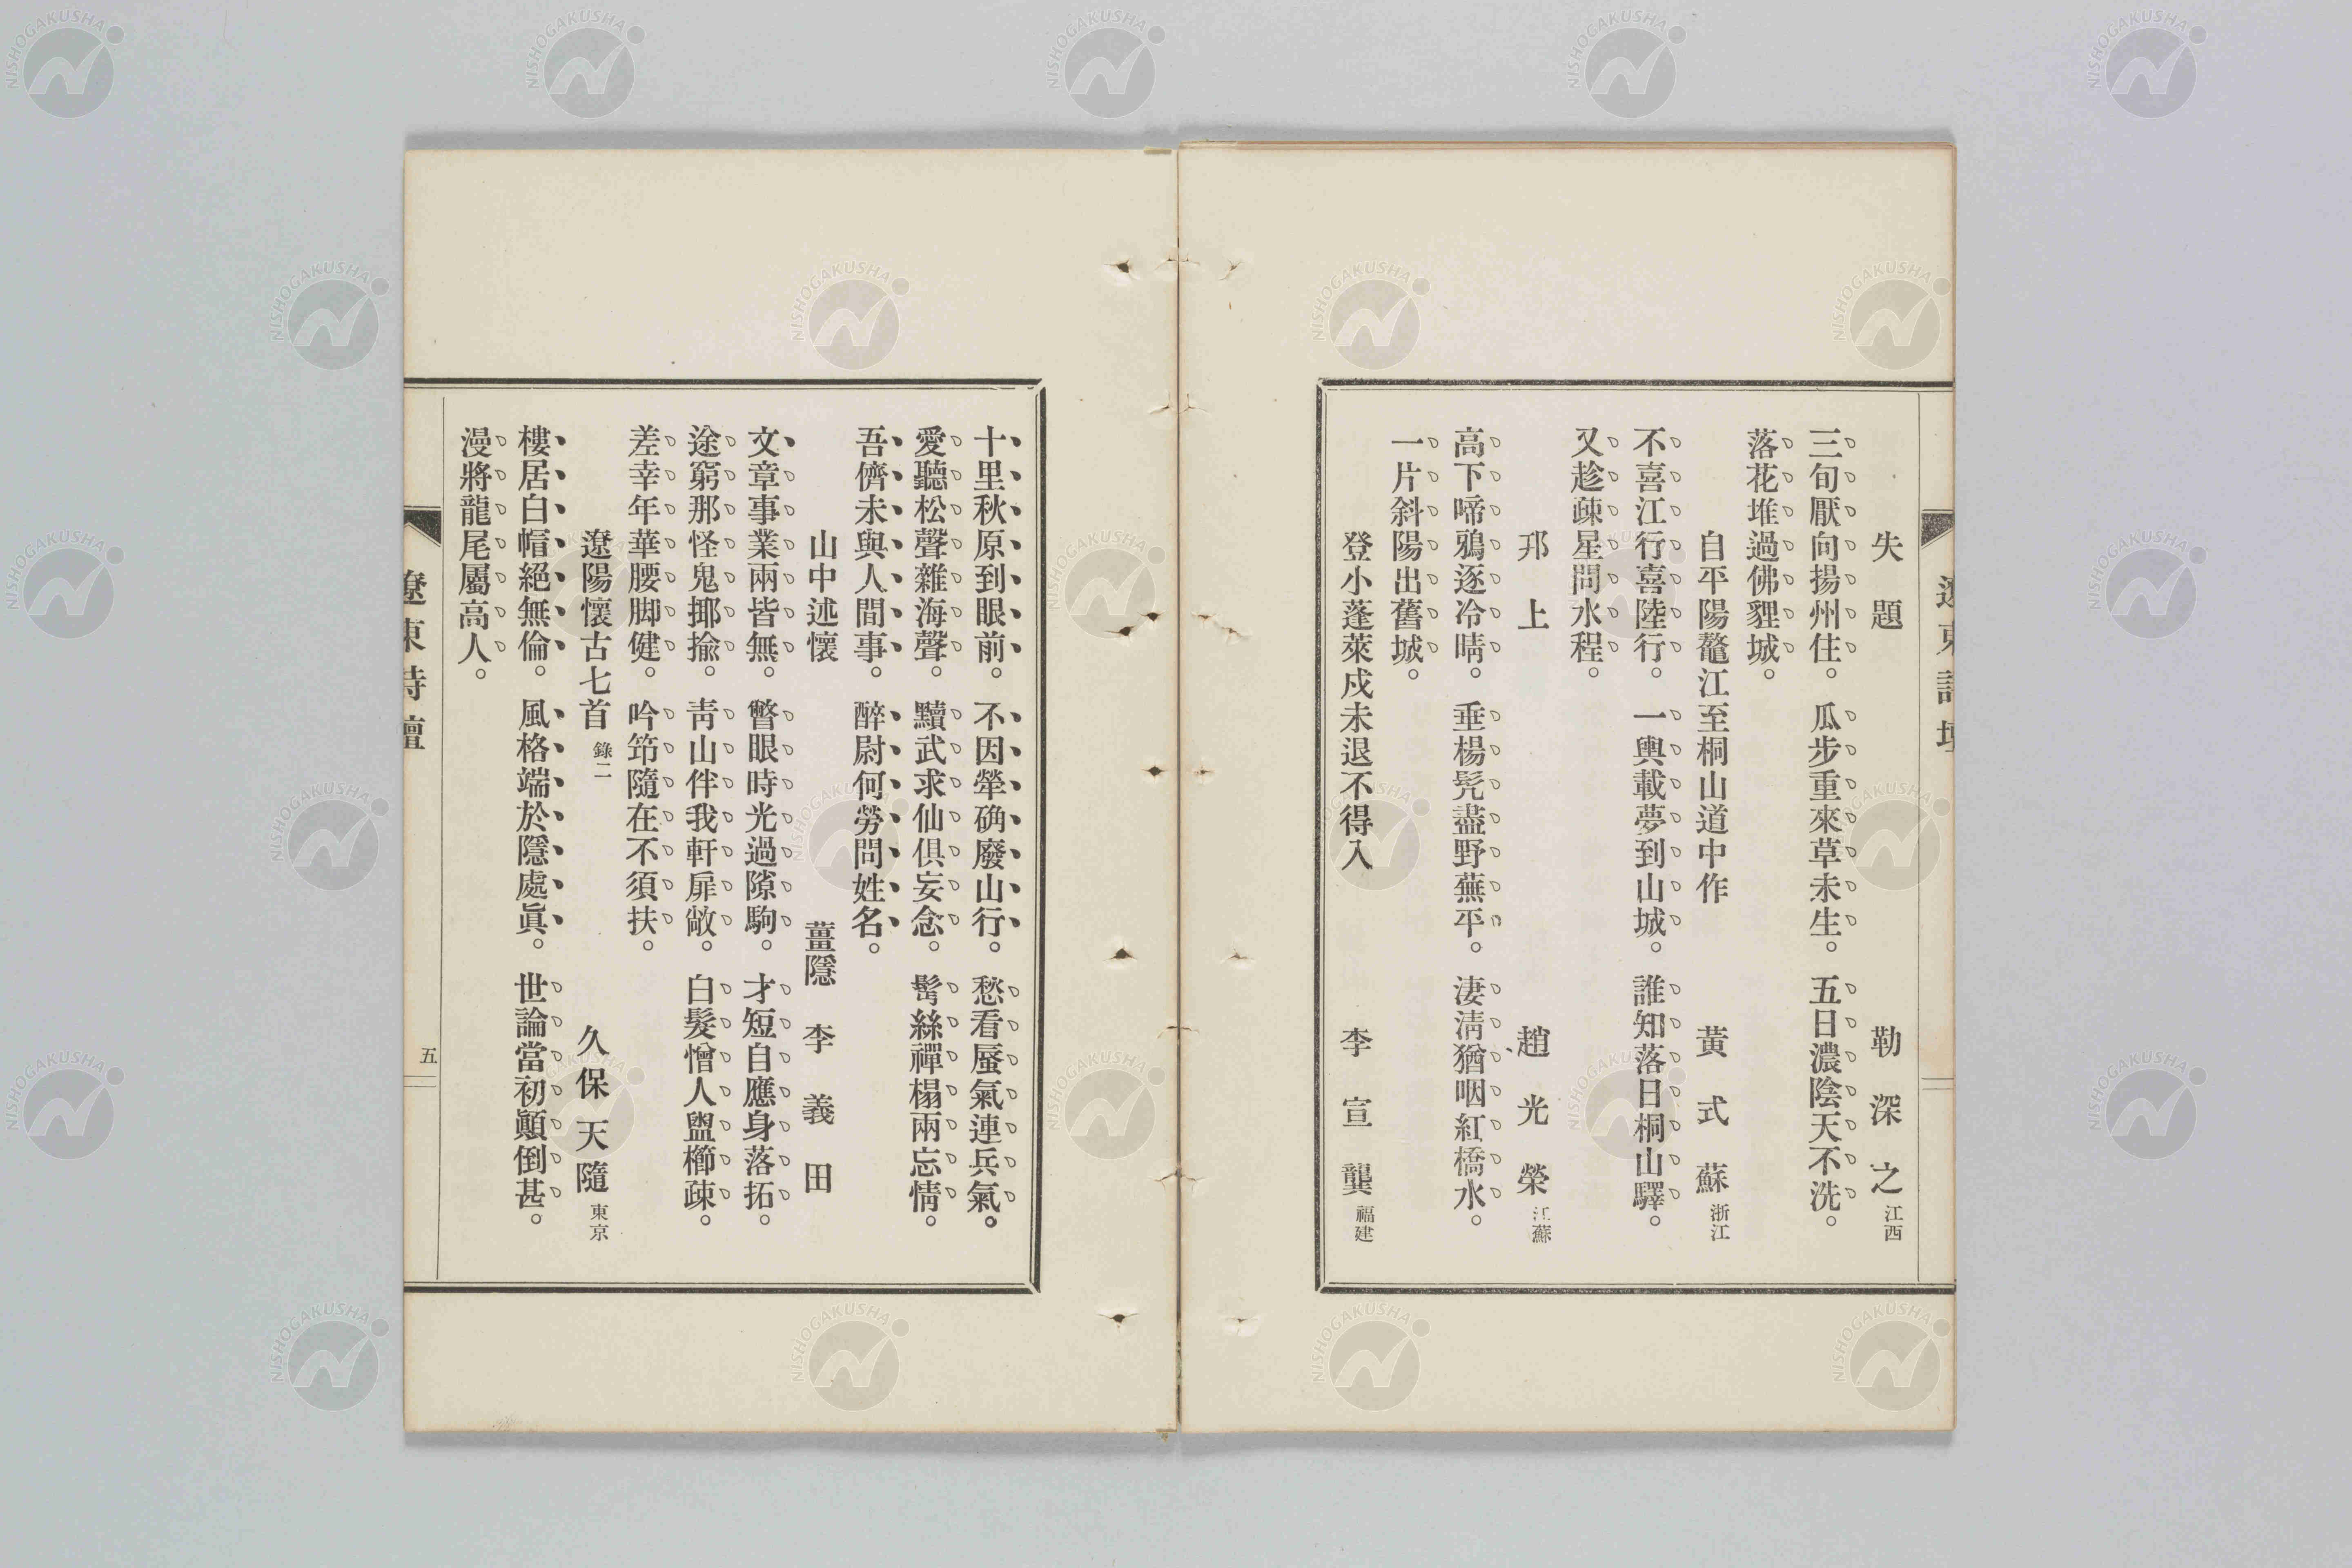 失題 勒深之 江西
三旬厭向揚州住。瓜步重來草未生。五日濃陰天不洗。
落花堆過佛貍城。
自平陽鼇江至桐山道中作 黃式蘇 浙江
不喜江行喜陸行。一輿載夢到山城。誰知落日桐山驛。
又趁疎星問水程。
邗上 趙光榮 江蘇
高下啼鴉逐冷晴。垂楊髡盡野蕪平。淒淸猶咽紅橋水。
一片斜陽出舊城。
登小蓬萊戍未退不得入 李宣龔 福建
十里秋原到眼前。不因犖确廢山行。愁看蜃氣連兵氣。
愛聽松聲雜海聲。黷武求仙俱妄念。髩絲禪榻兩忘情。
吾儕未與人間事。醉尉何勞問姓名。
山中述懷 薑隱 李義田
文章事業兩皆無。瞥眼時光過隙駒。才短自應身落拓。
途窮那怪鬼揶揄。靑山伴我軒扉敞。白髮憎人盥櫛疎。
差幸年華腰脚健。吟筇隨在不須扶。
遼陽懷古七首 錄二 久保天隨 東京
樓居白帽絕無倫。風格端於隱處眞。世論當初顚倒甚。
漫將龍尾屬高人。
遼東詩壇
五
NISHOGAKUSHA